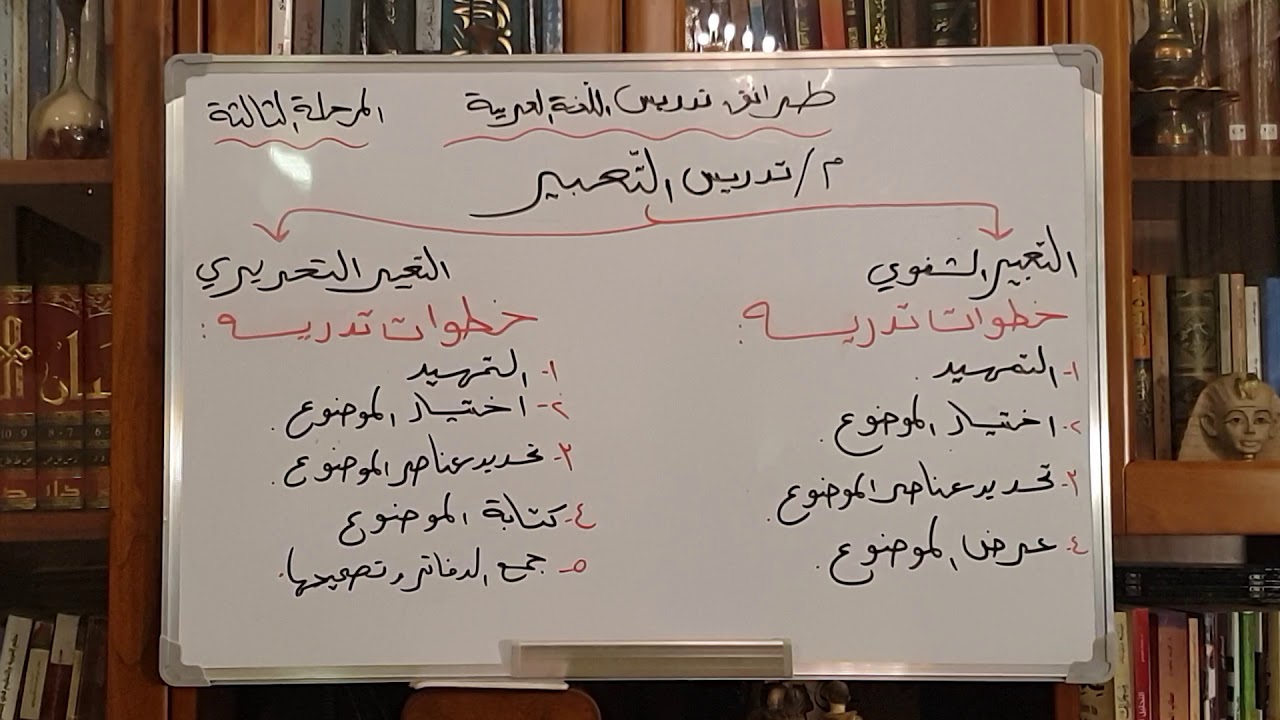 طرائق تدريس اللغة العربية
المرحلة الثالثة
م/ تدريس التّعبير
التعبير الشفوي
خطوات تدريسه :
١- التمهيد .
٢- اختيار الموضوع .
٣- تحديد عناصر الموضوع .
٤- عرض الموضوع .
التعبير التحريري
خطوات تدريسه :
١- التمهيد
٢- اختيار الموضوع .
٣- تحديد عناصر الموضوع .
٤- كتابة الموضوع
٥- جمع الدفاتر وتصحيحها .